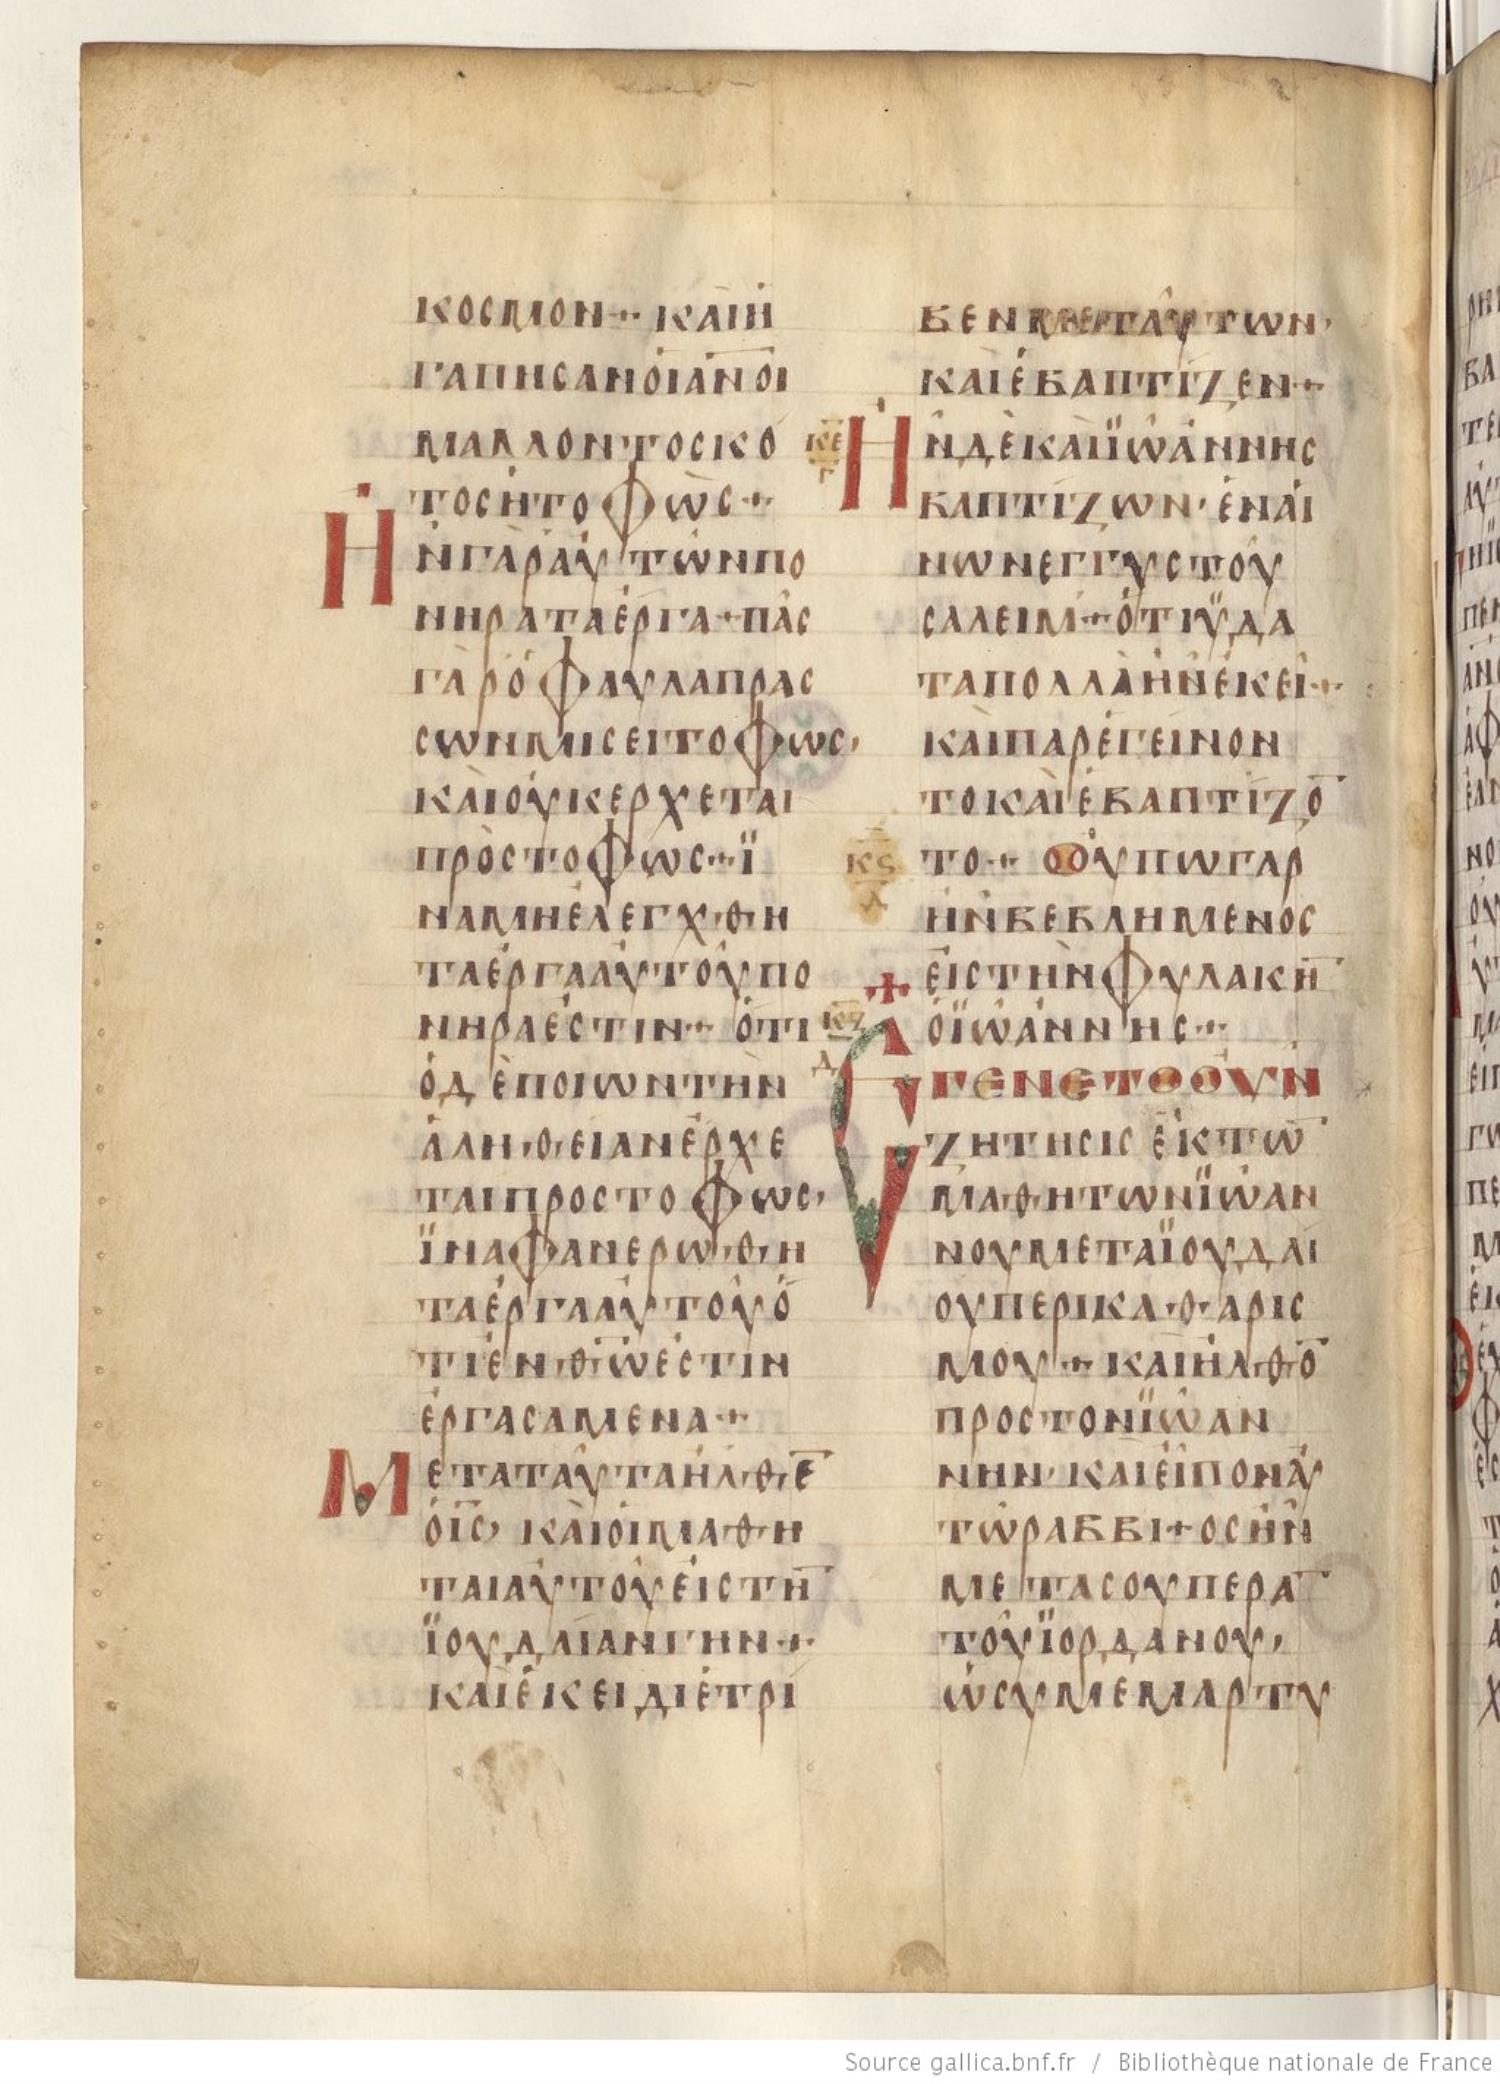 ΚΟCΜΟΝ·:· ΚΑΙΗ
ΓΑΠΗCΑΝΟΙΑΝΟΙ
ΜΑΛΛΟΝΤΟCΚΟ
ΤΟCΗΤΟΦΩC·:·
ΗΝΓΑΡΑΥΤΩΝΠΟ
ΝΗΡΑΤΑΕΡΓΑ·:·ΠΑC
ΓΑΡΟΦΑΥΛΑΠΡΑC
CΩΝΜΙCΕΙΤΟΦΩC,
ΚΑΙΟΥΚΕΡΧΕΤΑΙ
ΠΡΟCΤΟΦΩC·:·Ϊ
ΝΑΜΗΕΛΕΓΧΘΗ
ΤΑΕΡΓΑΑΥΤΟΥΠΟ
ΝΗΡΑΕCΤΙΝ·:· ΟΤΙ
ΟΔΕΠΟΙΩΝΤΗΝ
ΑΛΗΘΕΙΑΝΕΡΧΕ
ΤΑΙΠΡΟCΤΟΦΩC,
ΪΝΑΦΑΝΕΡΩΘΗ
ΤΑΕΡΓΑΑΥΤΟΥΟ
ΤΙΕΝΘ̅Ω̅ΕCΤΙΝ
ΕΡΓΑCΑΜΕΝΑ·:·
ΜΕΤΑΤΑΥΤΑΗΛΘΕ̅
ΟΙ̅C̅, ΚΑΙΟΙΜΑΘΗ
ΤΑΙΑΥΤΟΥΕΙCΤΗ̅
ΪΟΥΔΑΙΑΝΓΗΝ·:·
ΚΑΙΕΚΕΙΔΙΕΤΡΙ
ΒΕΝΜΕΤΑΥΤΩΝ,
ΚΑΙΕΒΑΠΤΙΖΕΝ·:·
ΚΕ̅
Γ
ΗΝΔΕΚΑΙΪΩΑΝΝΗC
ΒΑΠΤΙΖΩΝ· ΕΝΑΙ
ΝΩΝΕΓΓΥCΤΟΥ
CΑΛΕΙΜ·:·ΟΤΙΫΔΑ
ΤΑΠΟΛΛΑΗΝΕΚΕΙ·:·
ΚΑΙΠΑΡΕΓΕΙΝΟΝ
ΤΟΚΑΙΕΒΑΠΤΙΖΟ̅
Κϛ̅
Δ
ΤΟ·:· ΟΟΥΠΩΓΑΡ
ΗΝΒΕΒΛΗΜΕΝΟC
ΕΙCΤΗΝΦΥΛΑΚΗ̅
ΚΖ̅
Δ
ΟΪΩΑΝΝΗC·:·
ΕΓΕΝΕΤΟΟΥΝ
ΖΗΤΗCΙCΕΚΤΩ̅
ΜΑΘΗΤΩΝΪΩΑΝ
ΝΟΥΜΕΤΑΪΟΥΔΑΙ
ΟΥΠΕΡΙΚΑΘΑΡΙC
ΜΟΥ·:· ΚΑΙΗΛΘΟ̅
ΠΡΟCΤΟΝΪΩΑΝ
ΝΗΝ· ΚΑΙΕΙΠΟΝΑΥ
ΤΩΡΑΒΒΙ·:·ΟCΗΝ
ΜΕΤΑCΟΥΠΕΡΑ̅
ΤΟΥΪΟΡΔΑΝΟΥ,
ΩCΥΜΕΜΑΡΤΥ
Source gallica.bnf.fr / Bibliothèque nationale de France